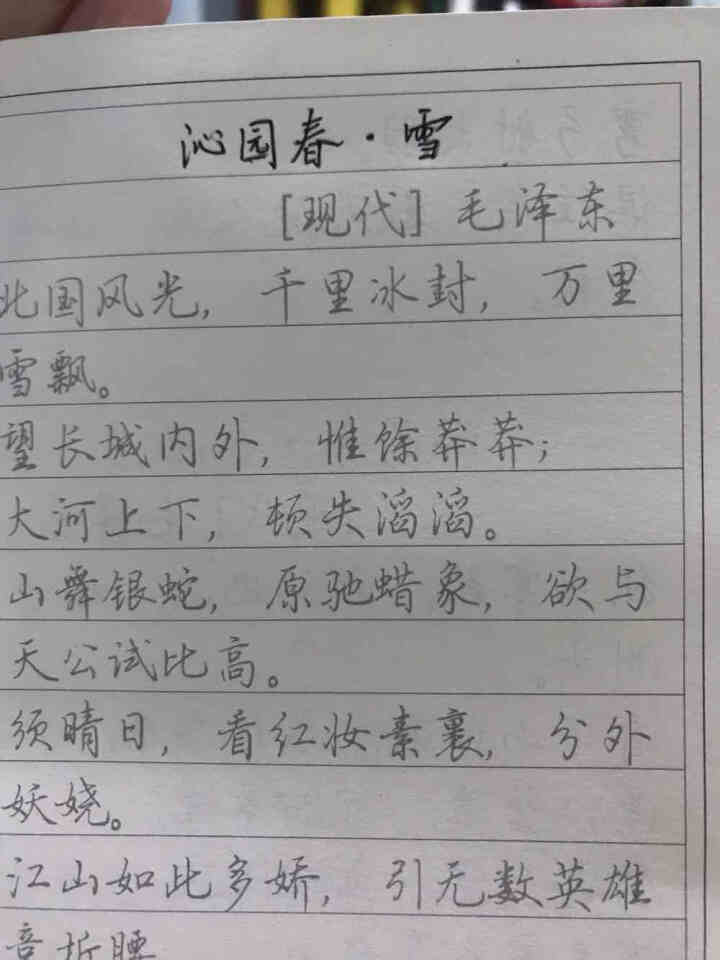 沁园春·雪
[现代] 毛泽东
北国风光, 千里冰封, 万里
雪飘。
望长城内外, 惟馀莽莽;
大河上下, 顿失滔滔。
山舞银蛇, 原驰蜡象, 欲与
天公试比高。
须晴日, 看红妆素裹, 分外
妖娆。
江山如此多娇, 引无数英雄
竞折腰